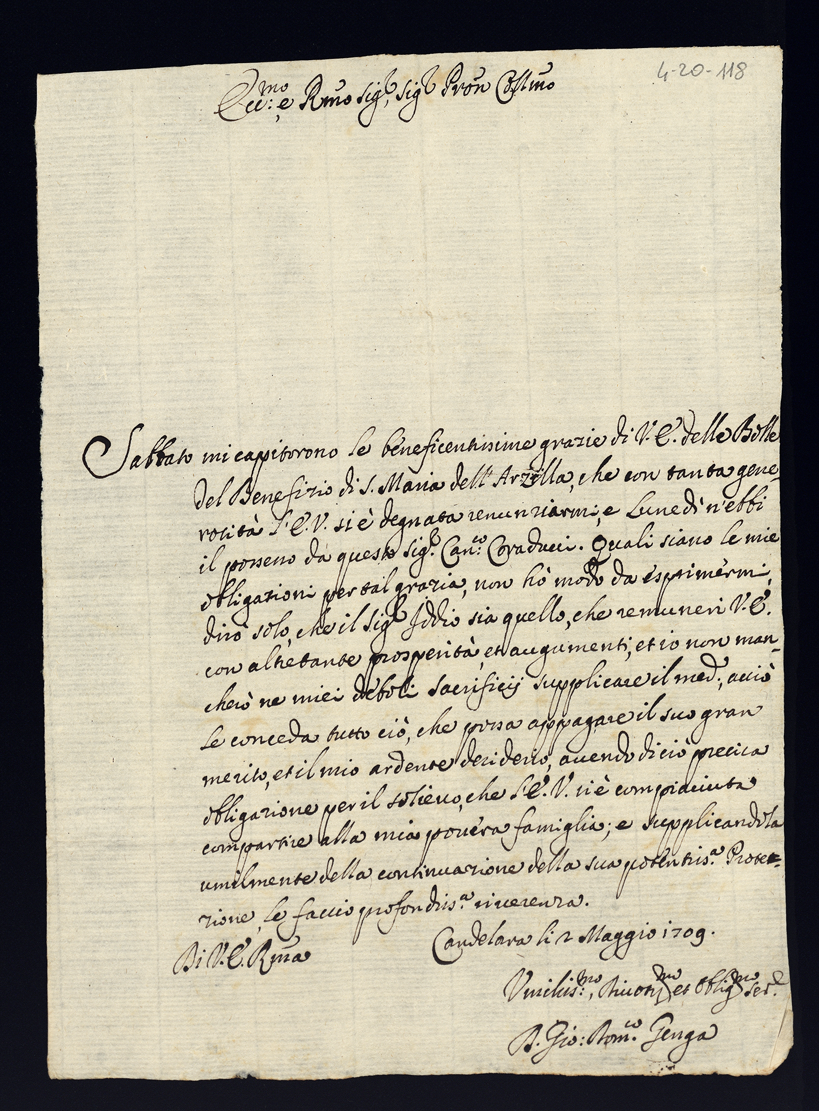 4-20-118
Ecc:mo e Rmo Sig.r, Sig.r Pron Colmo
Sabbato mi capitorono le beneficentissime grazie di V.E. delle Bolle
del Benefizio di S. Maria dell'Arzilla, che con tanta gene-
rosità l'E.V. si è degnata renunziarmi, e Lunedì n'ebbi
il possesso da questo Sig.r Can:co Coraducci. Quali siano le mie
obligazioni per tal grazia, non hò modo da esprimermi,
dirò solo, che il Sig.r Iddio sia quello, che remuneri V.E.
con altretante prosperità, et augumenti, et io non man-
cherò ne miei deboli sacrificij supplicare il med.º, acciò
le conceda tutto ciò, che possa appagare il suo gran
merito, et il mio ardente desiderio, avendo di ciò precisa
obligazione per il solievo, che l'E.V. si è compiaciuta
compartire alla mia povera famiglia; e supplicandola
umilmente della continuazione della sua potentiss.a Protez-
zione, le faccio profondiss.a riverenza.
Di V.E. Rma
Candelara li 2 Maggio 1709.
Vmiliss:mo, Divotis.mo et Oblig.mo Ser.e
D. Gio: Dom.co Genga